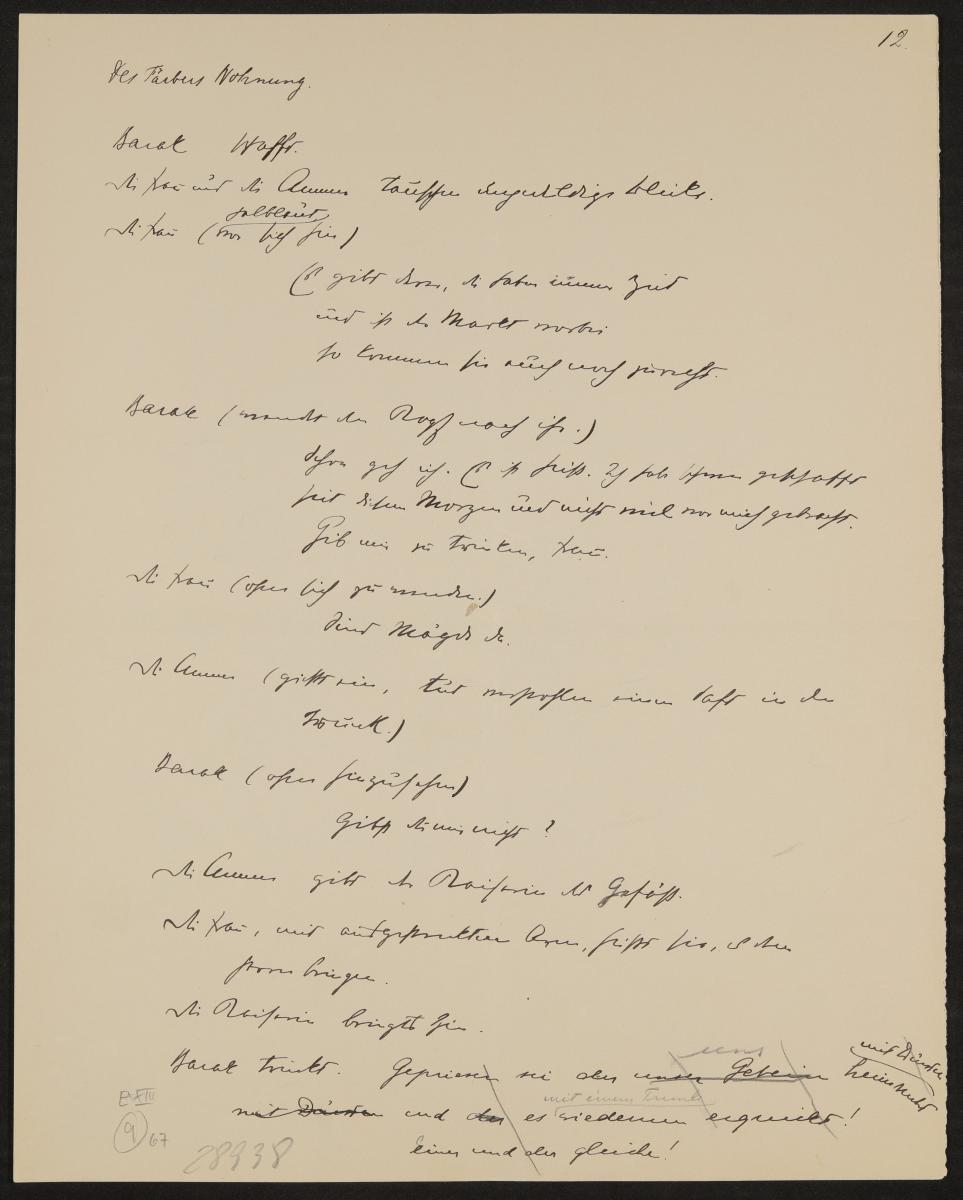 12.
Des Färbers Wohnung.
Barak schafft.
die Frau und die Amme tauschen ungeduldige Blicke.
halblaut
die Frau (vor sich hin)
Es gibt derer, die haben immer Zeit
und ist der Markt vorbei
so kommen sie auch noch zurecht.
Barak (wendet den Kopf nach ihr.)
Schon geh ich. Es ist heiß. Ich hab schwer geschafft
seit diesem Morgen und nicht viel vor mich gebracht.
Gib mir zu trinken, Frau.
die Frau (ohne sich zu wenden.)
Sind Mägde da.
die Amme (gießt ein, tut verstohlen einen Saft in den
Trunk.)
Barak (ohne hinzusehen)
Gibst du mir nicht?
die Amme gibt der Kaiserin das Gefäß.
die Frau, mit ausgestrecktem Arm, heißt sie, es ihm
bringen.
die Kaiserin bringt's ihm.
uns
mit Dürsten
Barak trinkt. Gepriesen sei der unser Gebein heimsucht
mit einem Trunk
mit Dürsten und der es wiederum erquickt!
einer und der gleiche!
E XIII
9 67
28938